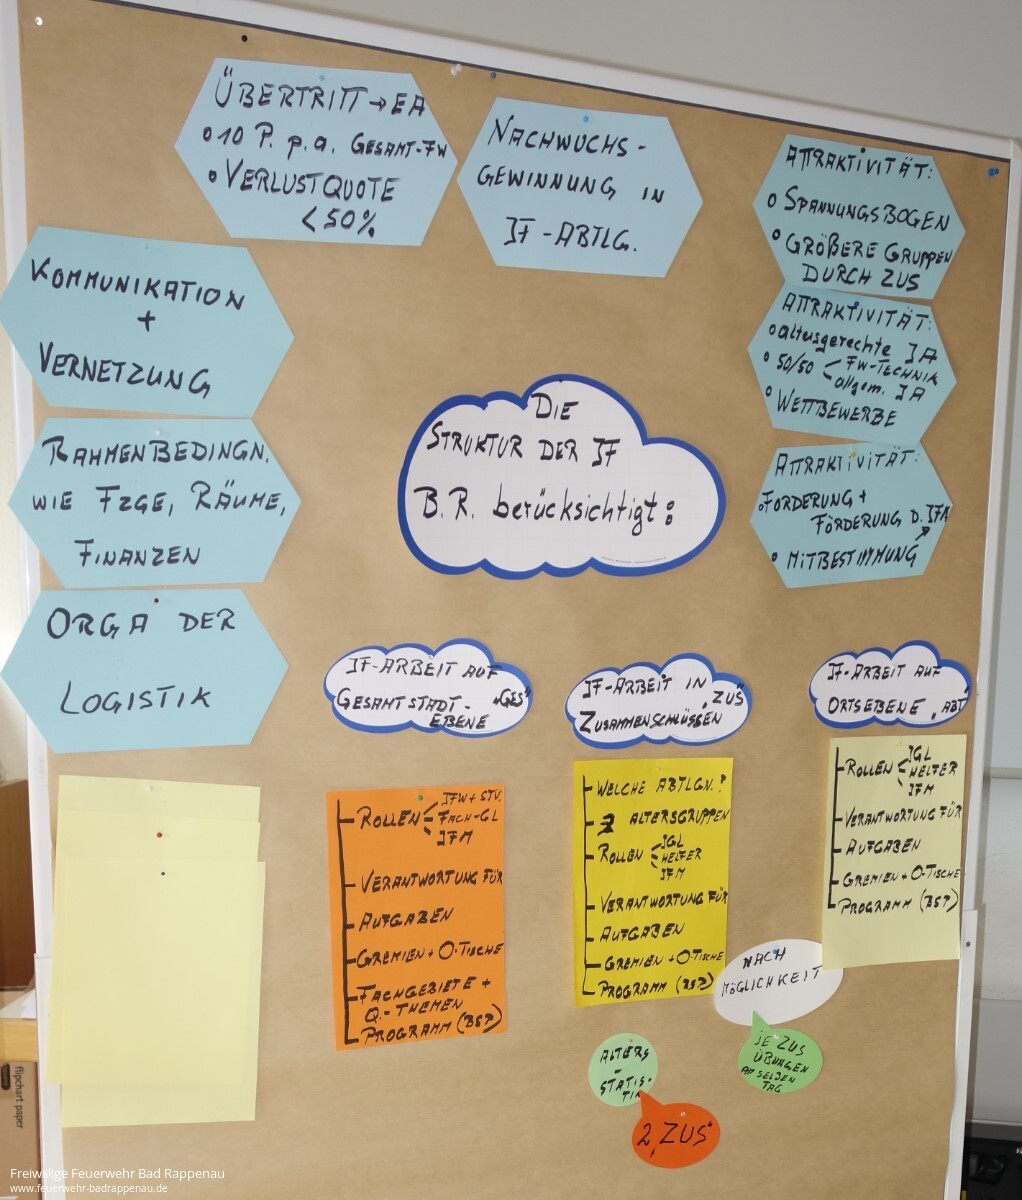 ÜBERTRITT → EA
• 10 P. p.a. GESAMT-FW
• VERLUSTQUOTE
< 50%
NACHWUCHS-
GEWINNUNG IN
JF-ABTLG.
ATTRAKTIVITÄT:
• SPANNUNGSBOGEN
• GRÖßERE GRUPPEN
DURCH ZUS
KOMMUNIKATION
+
VERNETZUNG
ATTRAKTIVITÄT:
• altersgerechte JA
• 50/50 < FW-TECHNIK
allgem. JA
• WETTBEWERBE
RAHMENBEDINGN.
WIE FZGE, RÄUME,
FINANZEN
ATTRAKTIVITÄT:
• FORDERUNG +
FÖRDERUNG D. JFA
• MITBESTIMMUNG
ORGA DER
LOGISTIK
DIE
STRUKTUR DER JF
B.R. berücksichtigt:
JF-ARBEIT AUF
GESAMTSTADT- „GES"
EBENE
JFW + STV.
ROLLEN FACH-GL
JFM
VERANTWORTUNG FÜR
AUFGABEN
GREMIEN + O-TISCHE
FACHGEBIETE +
Q.-THEMEN
PROGRAMM (BSP)
JF-ARBEIT IN „ZUS"
ZUSAMMENSCHLÜSSEN
WELCHE ABTLGN.?
2 ALTERSGRUPPEN
JGL
ROLLEN HELFER
JFM
VERANTWORTUNG FÜR
AUFGABEN
GREMIEN + O-TISCHE
PROGRAMM (BSP)
JF-ARBEIT AUF
ORTSEBENE „ABT"
JGL
ROLLEN HELFER
JFM
VERANTWORTUNG FÜR
AUFGABEN
GREMIEN + O-TISCHE
PROGRAMM (BSP)
NACH
MÖGLICHKEIT
JE ZUS
ÜBUNGEN
AM SELBEN
TAG
ALTERS
-
STATIS-
TIK
2 „ZUS"
flipchart paper
Freiwillige Feuerwehr Bad Rappenau
www.feuerwehr-badrappenau.de